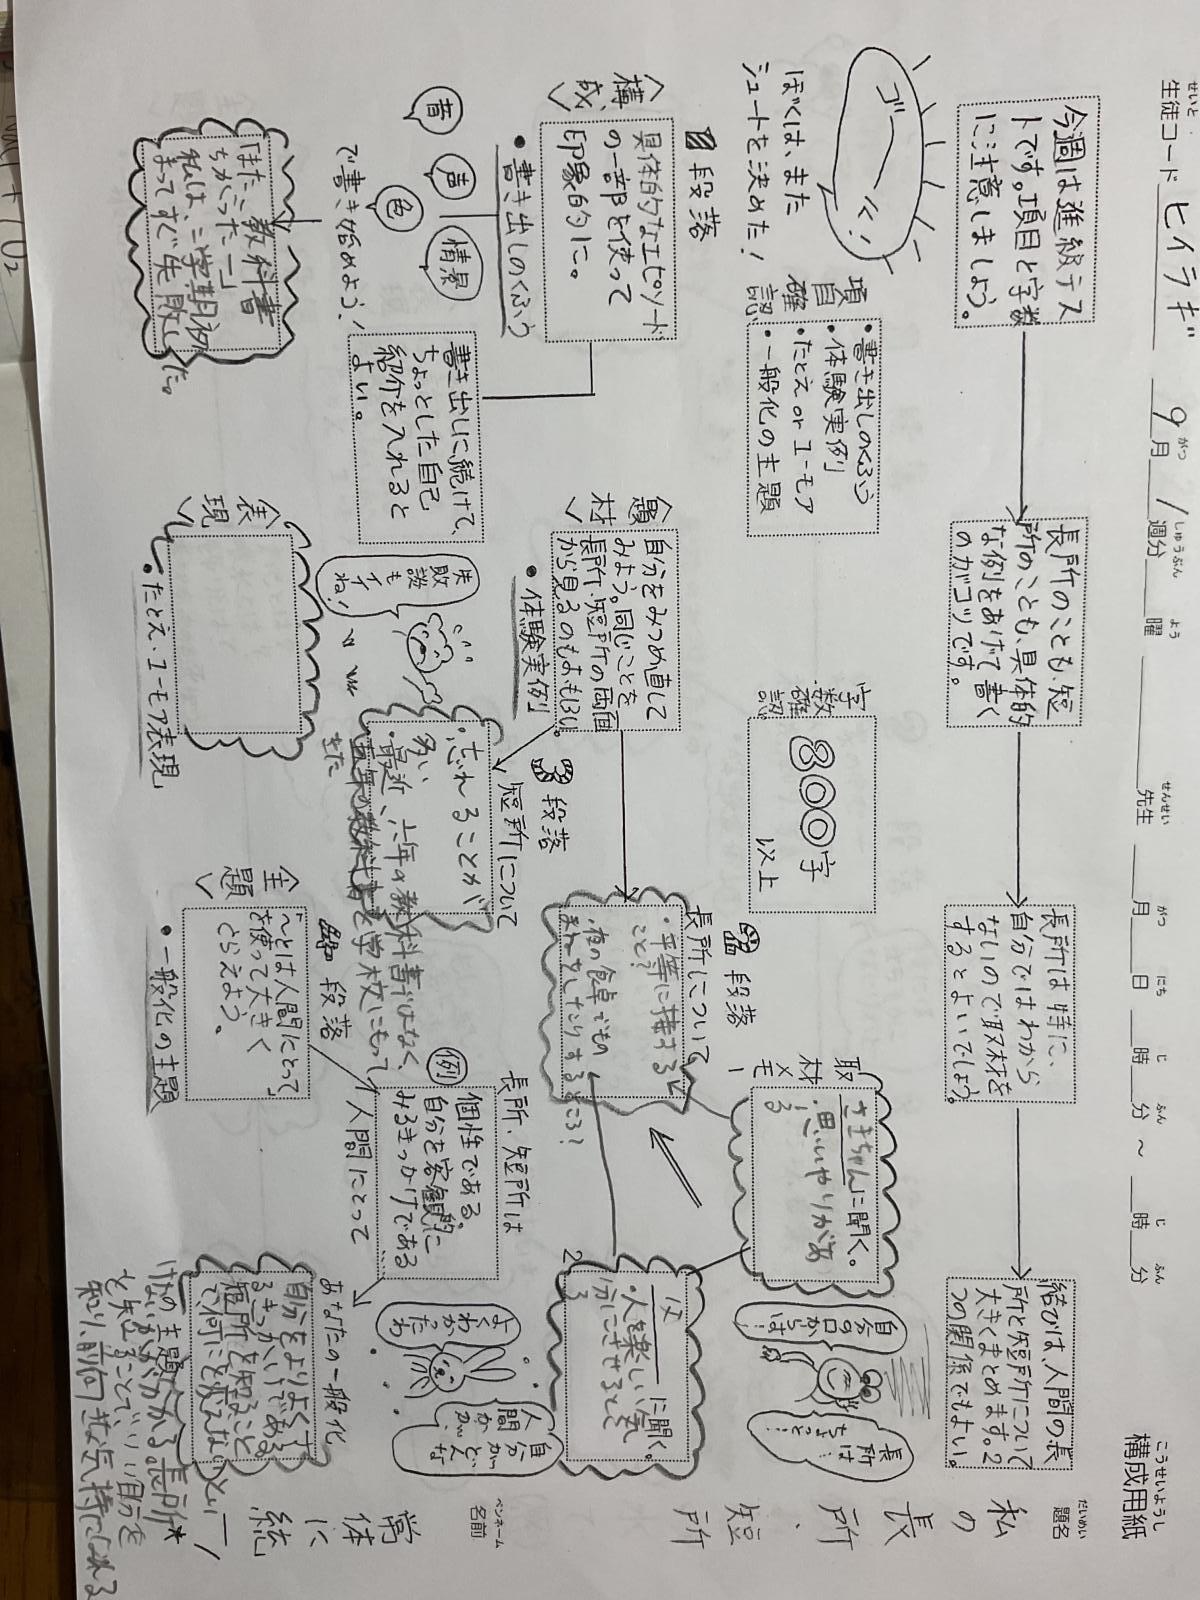 構成用紙
こうせいようし
せいと
生徒コード ヒイラギ
9月1週分 曜 先生 月 日 時 分 ~ 時 分
がつ しゅうぶん よう せんせい がつ にち じ ふん じ ふん
だいめい
題名
私の長所、短所
ペンネーム
名前
常体に統一
今週は進級テス
トです。項目と字数
に注意しましょう。
長所のことも、短
所のことも、具体的
な例をあげて書く
のがコツです。
長所は特に、
自分ではわから
ないので取材を
するとよいでしょう。
結びは、人間の長
所と短所について
大きくまとめます。2
つの関係でもよい。
ゴーール!
ぼくは、また
シュートを決めた!
項目確認
・書き出しのくふう
・体験実例
・たとえorユーモア
・一般化の主題
字数確認
800字
以上
取材メモ
1
さきちゃんに聞く。
・思いやりがあ
る
自分の口からは…
長所は?
ちょっと…
2
父に聞く。
・人を楽しい気
分にさせるとこ
ろ
段落
〈構成〉
具体的なエピソード
の一部を使って
印象的に。
・書き出しのくふう
音
声
色
情景
で書き始めよう!
書き出しに続けて、
ちょっとした自己
紹介を入れると
よい。
「また、教科書
ちがった…」
私は、二学期初
まってすぐ失敗した。
〈題材〉
自分をみつめ直して
みよう。同じことを
長所・短所の両面
から見るのもおもしろい。
・体験実例
失敗談もイイね!
段落
長所について
・平等に接する
こと?
・夜の食卓でもの
まねをしたりするところ!
段落
短所について
・忘れることが
多い
・最近、六年の教科書ではなく、
五年の教科書を学校にもって
きた
〈表現〉
・たとえ・ユーモア表現
〈主題〉
段落
「~とは人間にとって」
を使って大きく
とらえよう。
・一般化の主題
長所・短所は
人間にとって
例
個性である。
自分を客観的に
みるきっかけである
よくわかったわ
自分がどんな
人間か
あなたの一般化
自分をよりよくす
るきっかけである
短所を知ること
で何にを変えないとい
けないかがわかる。長所*
の主題
を知ることで、いい自分を
知り、前向きな気持になれる